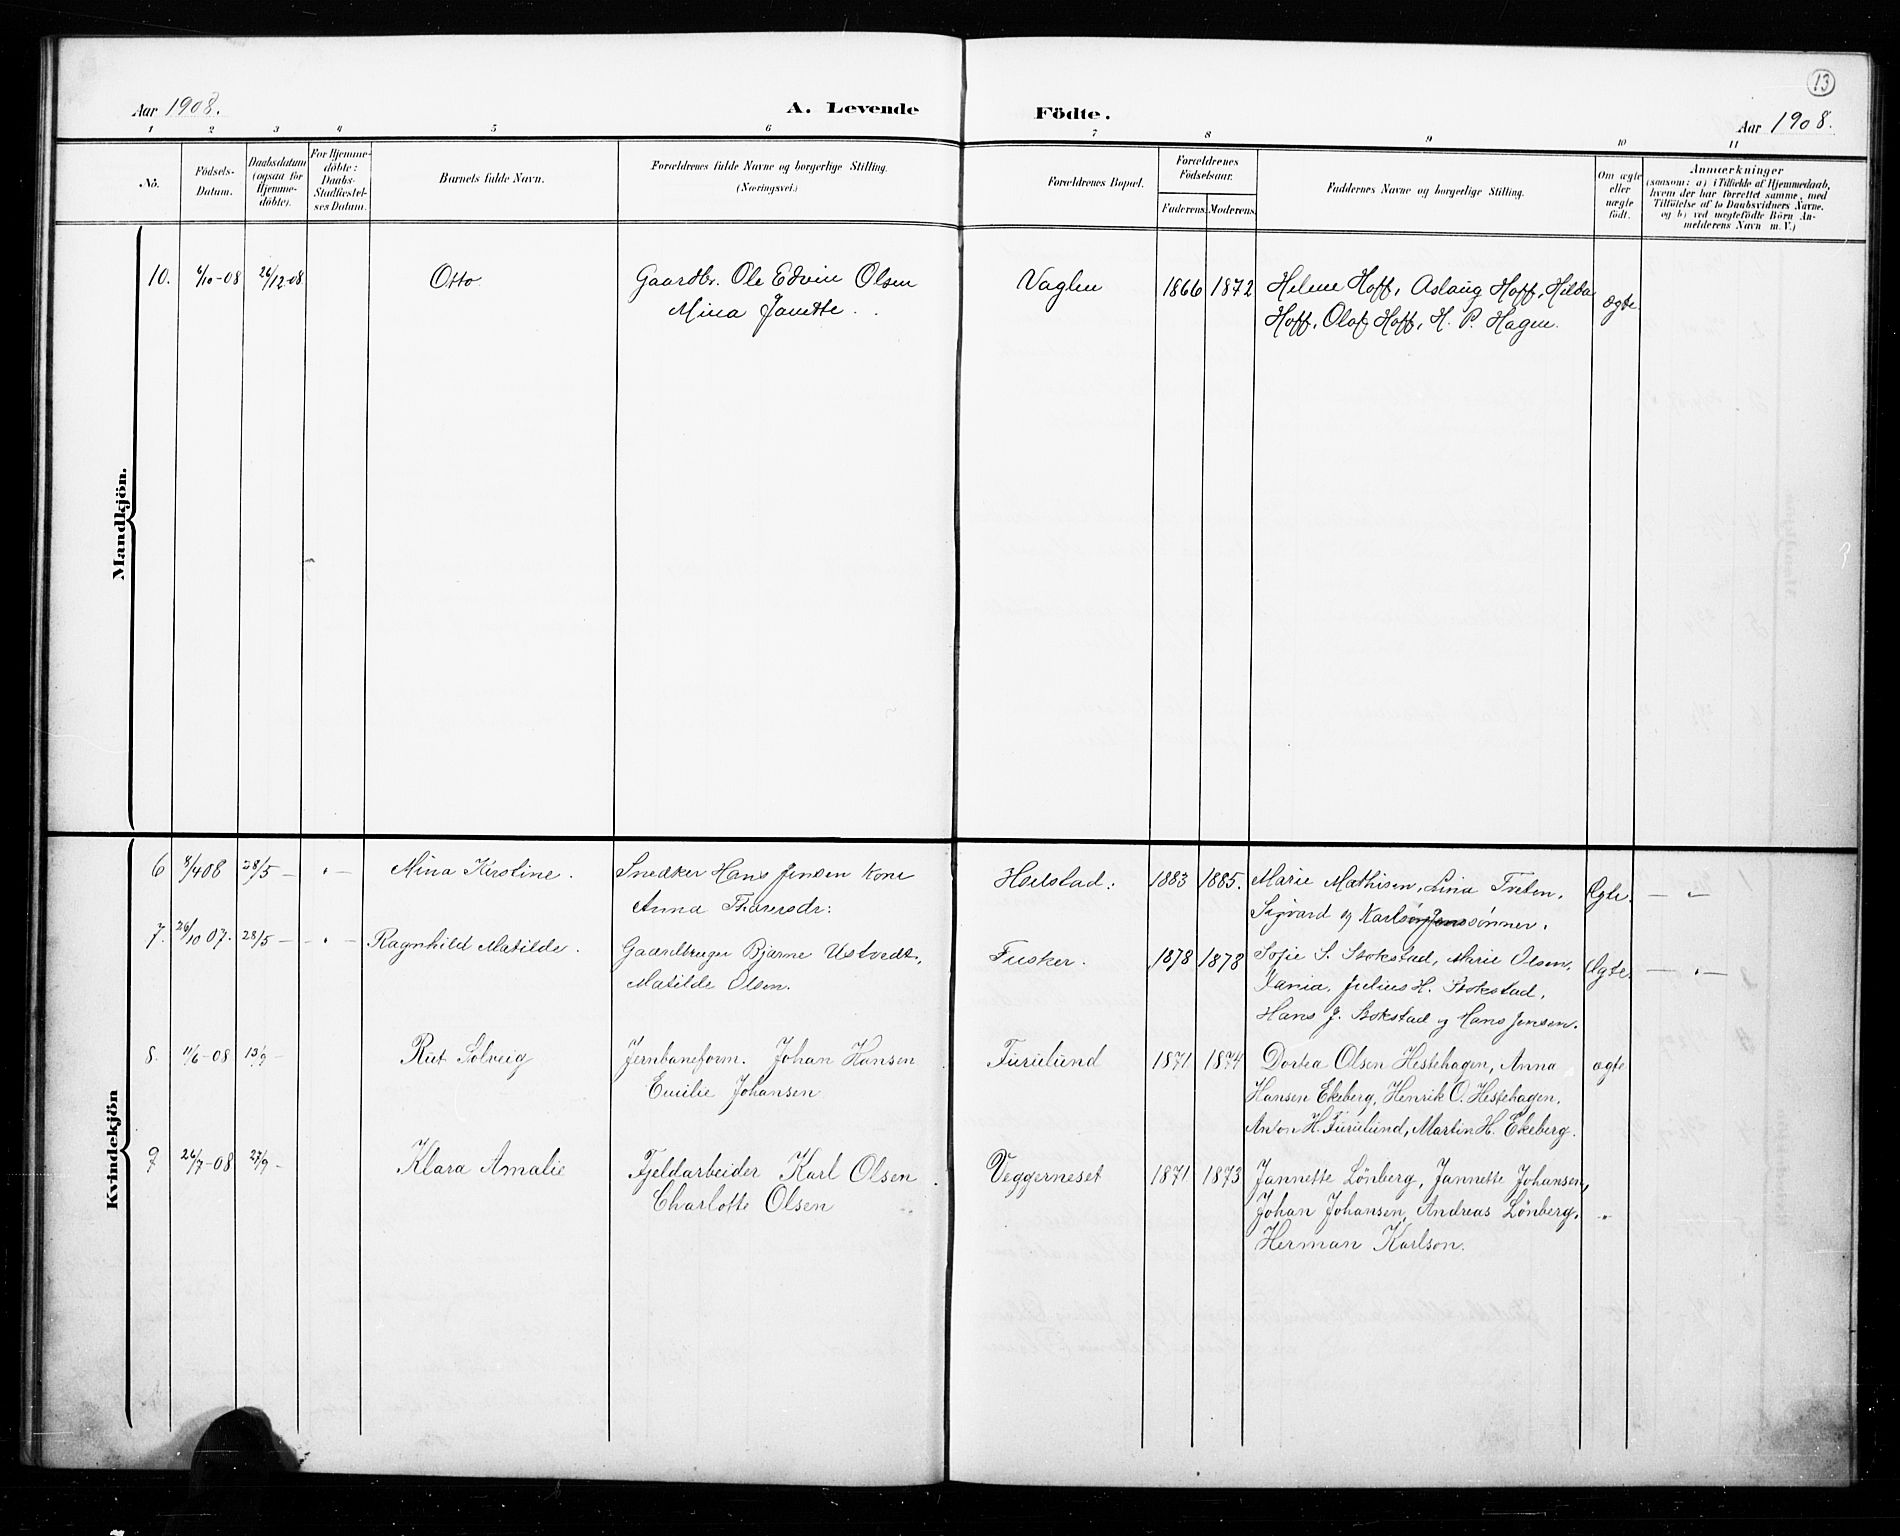 13
Aar 1908.
A. Levende
Födte.
Aar 1908.
1 2 3 4 5 6 7 8 9 10 11
No.
Födsels-Datum.
Daabsdatum (ogsaa for Hjemme-döbte).
For Hjemme-döbte: Daabs-Stadfæstel-ses Datum.
Barnets fulde Navn.
Forældrenes fulde Navne og borgerlige Stilling.
(Næringsvei.)
Forældrenes Bopæl.
Forældrenes Födselsaar.
Faderens. Moderens.
Faddernes Navne og borgerlige Stilling.
Om ægte eller uægte födt.
Anmærkninger
(saasom: a) i Tilfælde af Hjemmedaab,
hvem der har forrettet samme, med
Tilföielse af to Daabsvidners Navne.
og b) ved uægtefödte Börn An-
melderens Navn m. V.)
Mandkjön.
10. 6/10-08 26/12-08 Otto Gaardbr. Ole Edvin Olsen Vaglen 1866 1872 Helene Hoff, Aslaug Hoff, Hilda ægte
Mina Janette. Hoff, Olaf Hoff, H. P. Hagen.
Kvindekjön
6 8/4 08 28/5 — " — Mina Kirstine. Snedker Hans Jensen Kone Holstad. 1883 1885. Marie Mathisen, Lina Tveten, Ægte. — " —
Anna Thoresdr: Sigvard og Karl sønner.
7. 26/10 07. 28/5 — " — Ragnhild Matilde. Gaardbruger Bjarne Ustvedt, Fusker. 1878 1878 Sofie S. Stokstad, Marie Olsen, Ægte. — " —
Matilde Olsen. Julius H. Stokstad,
Hans J. Stokstad og Hans Jensen.
8. 11/6-08 13/9 - Rut Solveig Jernbaneform. Johan Hansen Furulund 1871 1874 Dortea Olsen Hestehagen, Anna ægte
Emilie Johansen Hansen Ekeberg, Henrik O. Hestehagen,
Anton H. Furulund, Martin H. Ekeberg.
9 26/7-08 27/9 - Klara Amalie Fjeldarbeider Karl Olsen Veggerneset 1871 1873 Jannette Lönberg, Jannette Johansen,
Charlotte Olsen Johan Johansen, Andreas Lönberg, "
Herman Karlson.